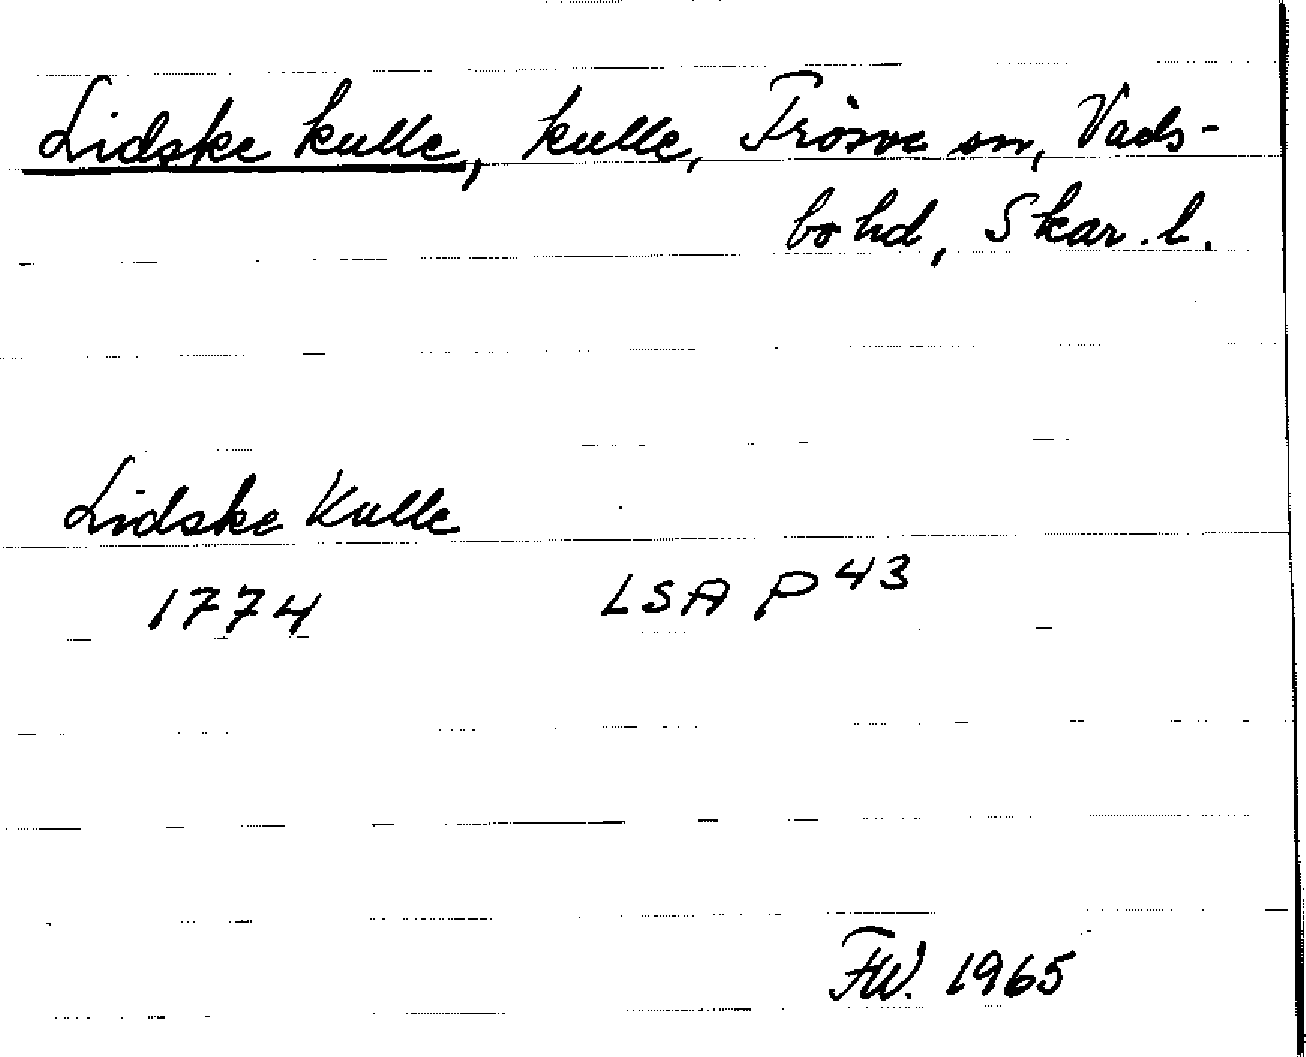 Lidske kulle, kulle, Frösve sn, Vads-
bo hd, Skar. l.
Lidske Kulle
1774 LSA P 43
F.W. 1965